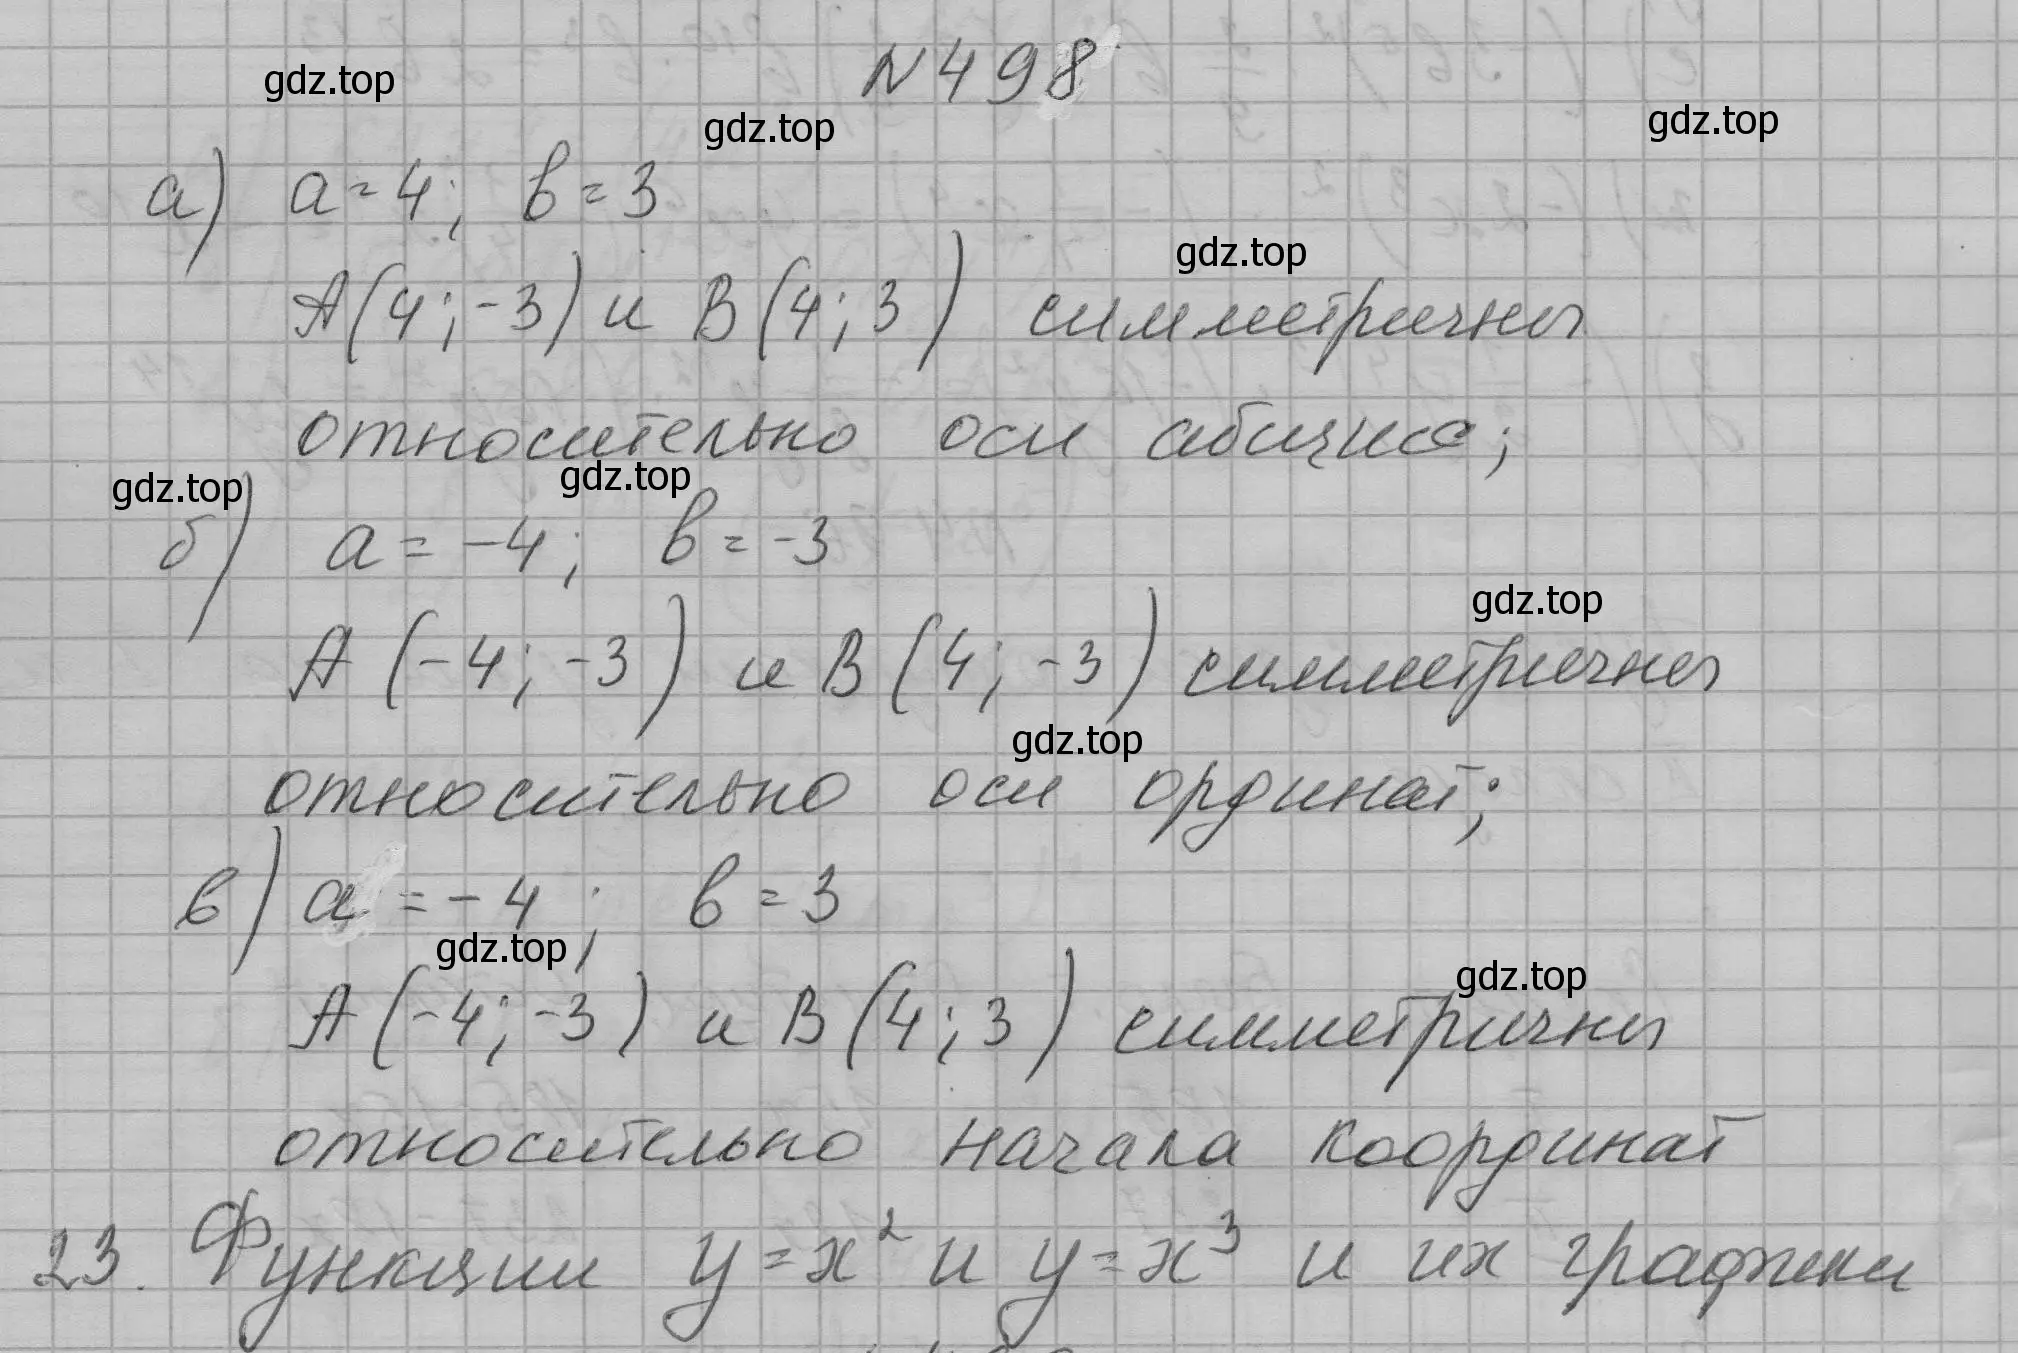 N498
gdz.top
gdz.top
gdz.top
а) a=4; b=3
gdz.top
A(4;-3) и B(4;3) симметричны
относительно оси абсцисс;
gdz.top
gdz.top
б) a=-4; b=-3
gdz.top
A(-4;-3) и B(4;-3) симметричны
gdz.top
относительно оси ординат;
в) a=-4; b=3
gdz.top
gdz.top
A(-4;-3) и B(4;3) симметричны
относительно начала координат
23. Функции y=x² и y=x³ и их графики